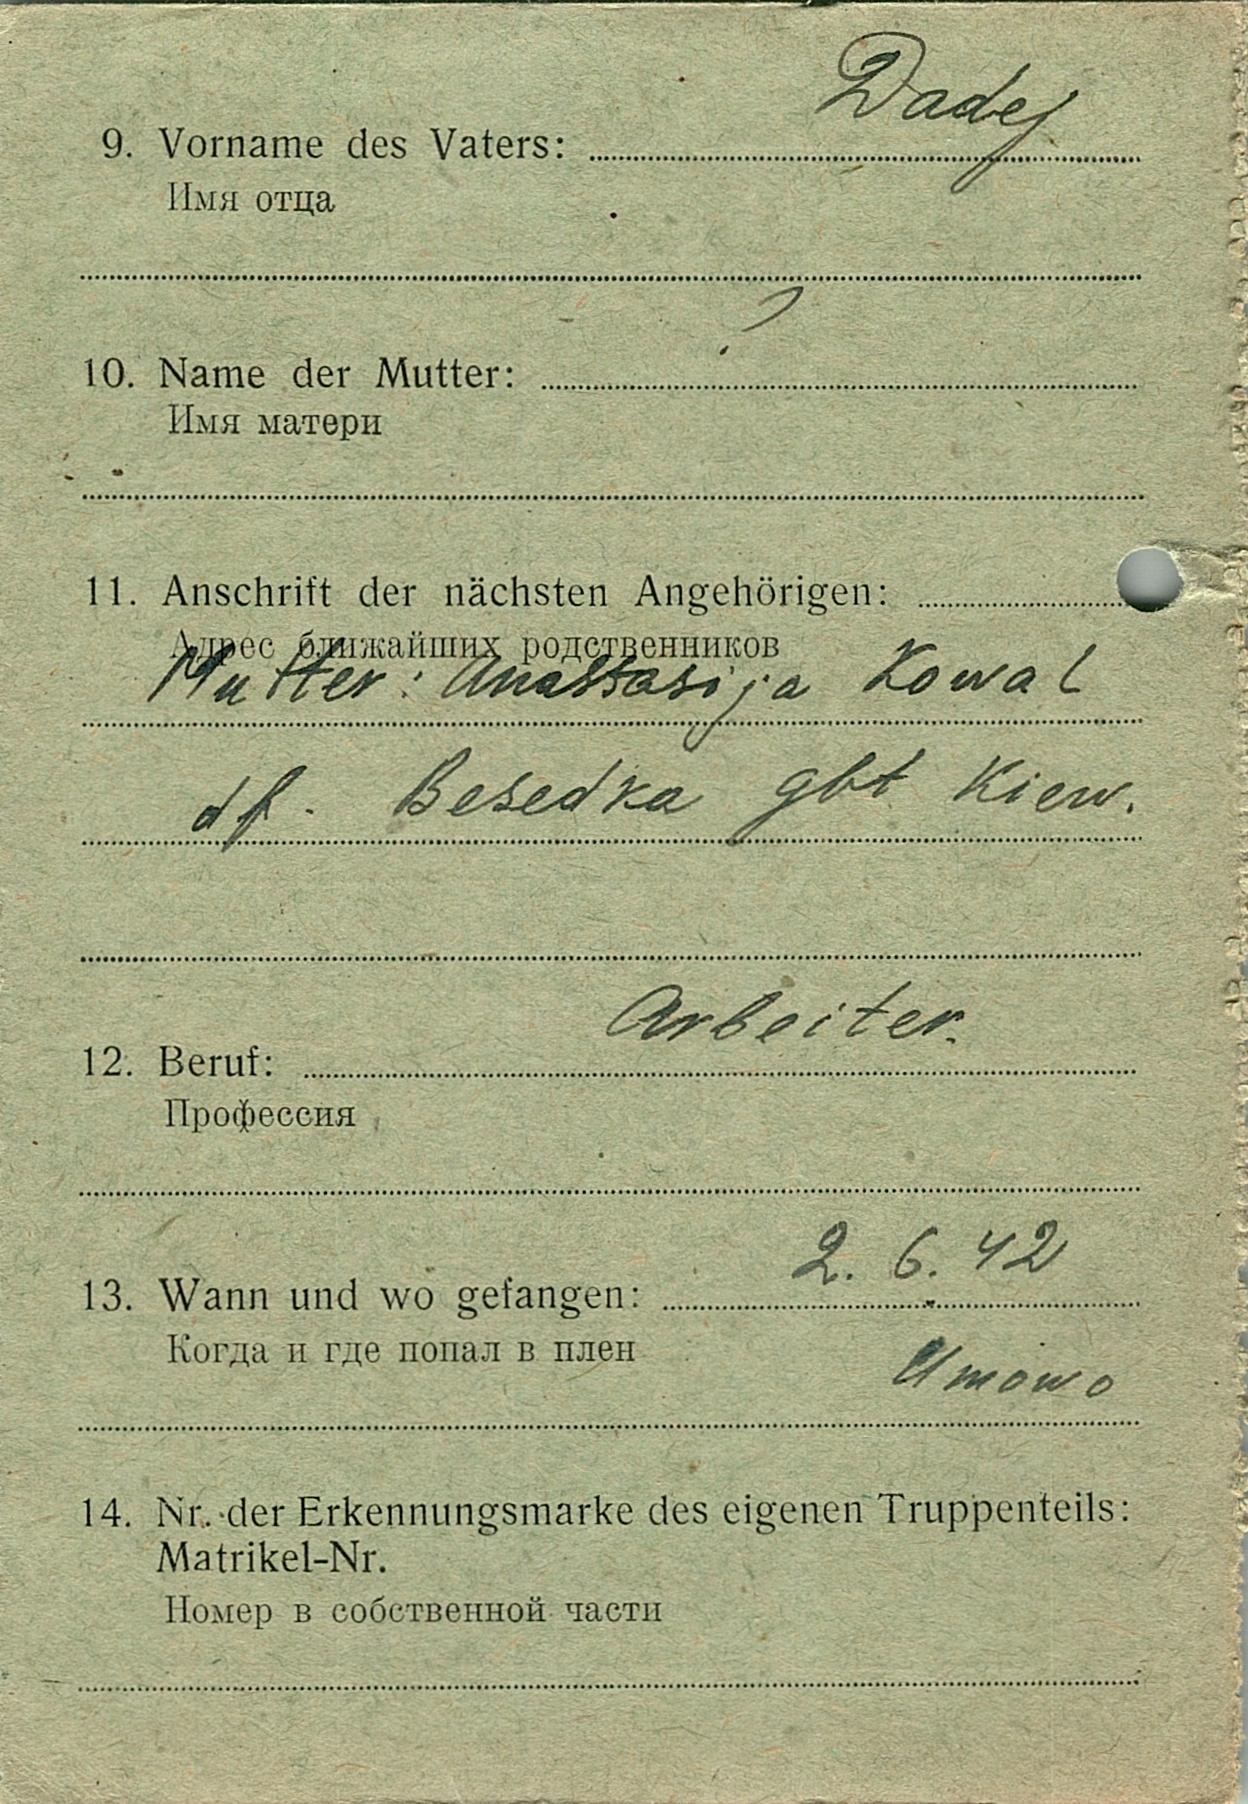 Dadej
9. Vorname des Vaters:
Имя отца
?
10. Name der Mutter:
Имя матери
11. Anschrift der nächsten Angehörigen:
Адрес ближайших родственников
Mutter: Anastasija Kowal
df. Besedka gbt Kiew.
Arbeiter.
12. Beruf:
Профессия
2. 6. 42
13. Wann und wo gefangen:
Когда и где попал в плен
Umowo
14. Nr. der Erkennungsmarke des eigenen Truppenteils:
Matrikel-Nr.
Номер в собственной части